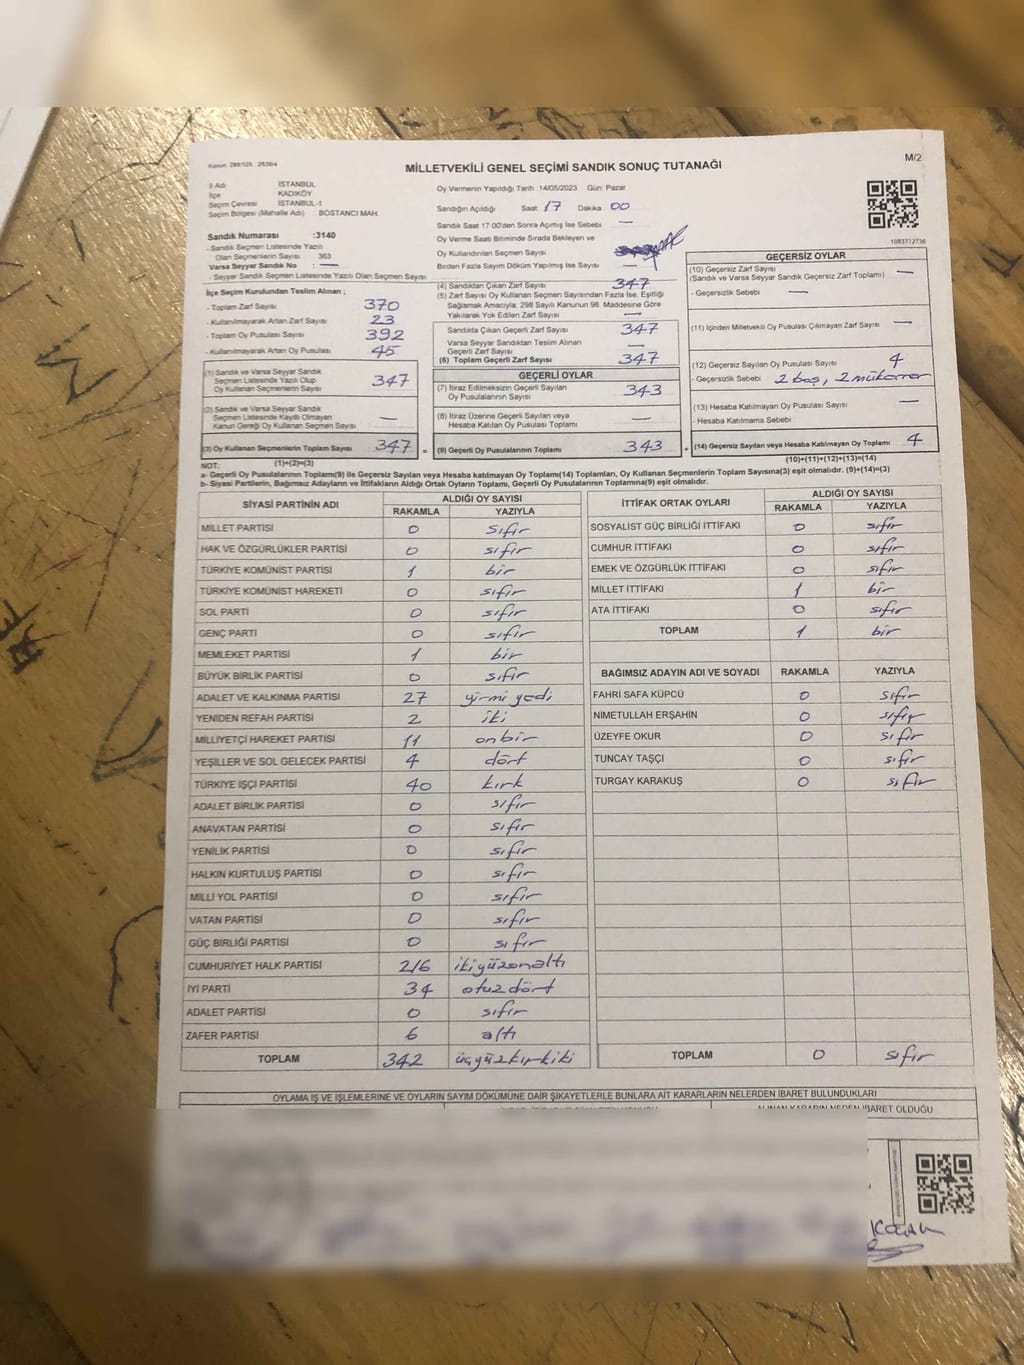 Kanun: 298/105 - 2839/4
MİLLETVEKİLİ GENEL SEÇİMİ SANDIK SONUÇ TUTANAĞI
M/2
İl Adı İSTANBUL
İlçe KADIKÖY
Seçim Çevresi İSTANBUL-1
Seçim Bölgesi (Mahalle Adı) BOSTANCI MAH.
Oy Vermenin Yapıldığı Tarih :14/05/2023 Gün: Pazar
Sandığın Açıldığı Saat 17 Dakika 00
Sandık Saat 17:00'den Sonra Açılmış İse Sebebi —
Oy Verme Saati Bitiminde Sırada Bekleyen ve
Oy Kullandırılan Seçmen Sayısı
Birden Fazla Sayım Döküm Yapılmış İse Sayısı —
1083772736
Sandık Numarası :3140
- Sandık Seçmen Listesinde Yazılı
Olan Seçmenlerin Sayısı 363
Varsa Seyyar Sandık No : —
- Seyyar Sandık Seçmen Listesinde Yazılı Olan Seçmen Sayısı
İlçe Seçim Kurulundan Teslim Alınan ;
- Toplam Zarf Sayısı 370
- Kullanılmayarak Artan Zarf Sayısı 23
- Toplam Oy Pusulası Sayısı 392
- Kullanılmayarak Artan Oy Pusulası 45
(1) Sandık ve Varsa Seyyar Sandık
Seçmen Listesinde Yazılı Olup
Oy Kullanan Seçmenlerin Sayısı 347
(2) Sandık ve Varsa Seyyar Sandık
Seçmen Listesinde Kayıtlı Olmayan
Kanun Gereği Oy Kullanan Seçmen Sayısı —
(3) Oy Kullanan Seçmenlerin Toplam Sayısı 347
(1)+(2)=(3)
(4) Sandıktan Çıkan Zarf Sayısı 347
(5) Zarf Sayısı Oy Kullanan Seçmen Sayısından Fazla İse, Eşitliği
Sağlamak Amacıyla; 298 Sayılı Kanunun 98. Maddesine Göre
Yakılarak Yok Edilen Zarf Sayısı —
Sandıkta Çıkan Geçerli Zarf Sayısı 347
Varsa Seyyar Sandıktan Teslim Alınan
Geçerli Zarf Sayısı —
(6) Toplam Geçerli Zarf Sayısı 347
GEÇERLİ OYLAR
(7) İtiraz Edilmeksizin Geçerli Sayılan
Oy Pusulalarının Sayısı 343
(8) İtiraz Üzerine Geçerli Sayılan veya
Hesaba Katılan Oy Pusulası Toplamı —
= (9) Geçerli Oy Pusulalarının Toplamı 343
GEÇERSİZ OYLAR
(10) Geçersiz Zarf Sayısı —
(Sandık ve Varsa Seyyar Sandık Geçersiz Zarf Toplamı)
- Geçersizlik Sebebi —
(11) İçinden Milletvekili Oy Pusulası Çıkmayan Zarf Sayısı —
(12) Geçersiz Sayılan Oy Pusulası Sayısı 4
- Geçersizlik Sebebi 2 boş, 2 mükerrer
(13) Hesaba Katılmayan Oy Pusulası Sayısı —
- Hesaba Katılmama Sebebi
+ (14) Geçersiz Sayılan veya Hesaba Katılmayan Oy Toplamı 4
(10)+(11)+(12)+(13)=(14)
NOT:
a- Geçerli Oy Pusulalarının Toplamı(9) ile Geçersiz Sayılan veya Hesaba katılmayan Oy Toplamı(14) Toplamları, Oy Kullanan Seçmenlerin Toplam Sayısına(3) eşit olmalıdır. (9)+(14)=(3)
b- Siyasi Partilerin, Bağımsız Adayların ve İttifakların Aldığı Ortak Oyların Toplamı, Geçerli Oy Pusulalarının Toplamına(9) eşit olmalıdır.
SİYASİ PARTİNİN ADI ALDIĞI OY SAYISI
RAKAMLA YAZIYLA
MİLLET PARTİSİ 0 sıfır
HAK VE ÖZGÜRLÜKLER PARTİSİ 0 sıfır
TÜRKİYE KOMÜNİST PARTİSİ 1 bir
TÜRKİYE KOMÜNİST HAREKETİ 0 sıfır
SOL PARTİ 0 sıfır
GENÇ PARTİ 0 sıfır
MEMLEKET PARTİSİ 1 bir
BÜYÜK BİRLİK PARTİSİ 0 sıfır
ADALET VE KALKINMA PARTİSİ 27 yirmi yedi
YENİDEN REFAH PARTİSİ 2 iki
MİLLİYETÇİ HAREKET PARTİSİ 11 onbir
YEŞİLLER VE SOL GELECEK PARTİSİ 4 dört
TÜRKİYE İŞÇİ PARTİSİ 40 kırk
ADALET BİRLİK PARTİSİ 0 sıfır
ANAVATAN PARTİSİ 0 sıfır
YENİLİK PARTİSİ 0 sıfır
HALKIN KURTULUŞ PARTİSİ 0 sıfır
MİLLİ YOL PARTİSİ 0 sıfır
VATAN PARTİSİ 0 sıfır
GÜÇ BİRLİĞİ PARTİSİ 0 sıfır
CUMHURİYET HALK PARTİSİ 216 ikiyüzonaltı
İYİ PARTİ 34 otuzdört
ADALET PARTİSİ 0 sıfır
ZAFER PARTİSİ 6 altı
TOPLAM 342 üçyüzkırkiki
İTTİFAK ORTAK OYLARI ALDIĞI OY SAYISI
RAKAMLA YAZIYLA
SOSYALİST GÜÇ BİRLİĞİ İTTİFAKI 0 sıfır
CUMHUR İTTİFAKI 0 sıfır
EMEK VE ÖZGÜRLÜK İTTİFAKI 0 sıfır
MİLLET İTTİFAKI 1 bir
ATA İTTİFAKI 0 sıfır
TOPLAM 1 bir
BAĞIMSIZ ADAYIN ADI VE SOYADI RAKAMLA YAZIYLA
FAHRİ SAFA KÜPCÜ 0 sıfır
NİMETULLAH ERŞAHİN 0 sıfır
ÜZEYFE OKUR 0 sıfır
TUNCAY TAŞÇI 0 sıfır
TURGAY KARAKUŞ 0 sıfır
TOPLAM 0 sıfır
OYLAMA İŞ VE İŞLEMLERİNE VE OYLARIN SAYIM DÖKÜMÜNE DAİR ŞİKAYETLERLE BUNLARA AİT KARARLARIN NELERDEN İBARET BULUNDUKLARI
ALINAN KARARIN NEDEN İBARET OLDUĞU